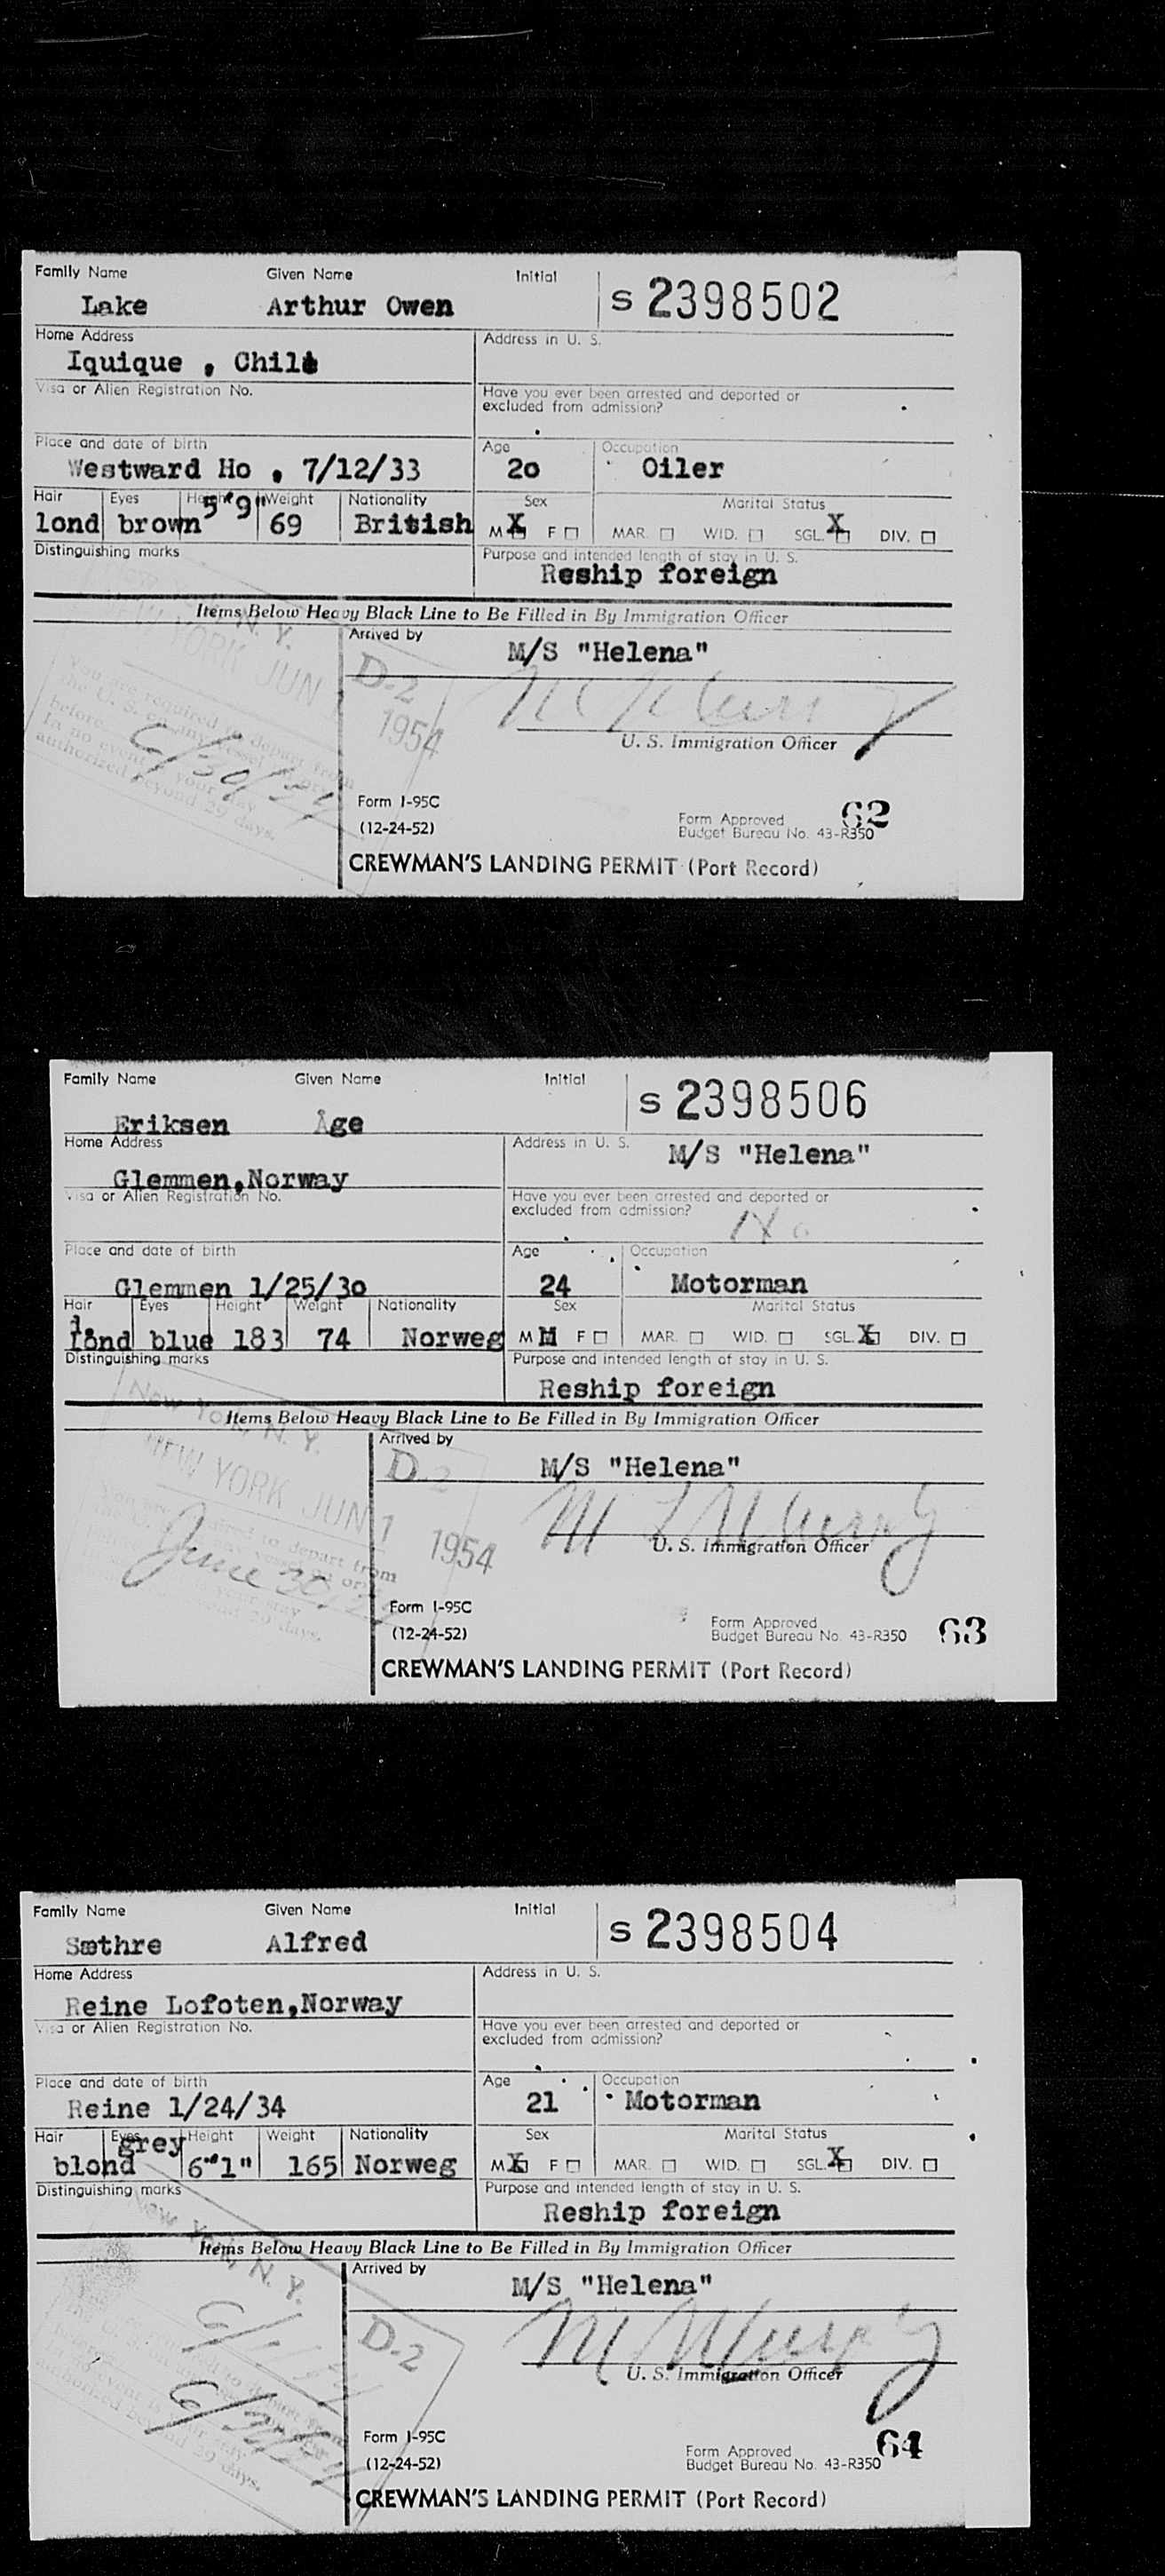 Family Name Given Name Initial S 2398502
Lake Arthur Owen
Home Address Address in U. S.
Iquique , Chile
Visa or Alien Registration No. Have you ever been arrested and deported or
excluded from admission?
Place and date of birth Age Occupation
Westward Ho , 7/12/33 20 Oiler
Hair Eyes Height Weight Nationality Sex Marital Status
lond brown 5"9" 69 British M X F SGL. X MAR. WID. DIV.
Distinguishing marks Purpose and intended length of stay in U. S.
Reship foreign
Items Below Heavy Black Line to Be Filled in By Immigration Officer
Arrived by
M/S "Helena"
N. Y.
NEW YORK JUN 1954
D-2
You are required to depart from
the U. S.
before
In no event your stay
authorized beyond 29 days.
6/30/54
U. S. Immigration Officer
Form I-95C
(12-24-52)
Form Approved
Budget Bureau No. 43-R350
62
CREWMAN'S LANDING PERMIT (Port Record)
Family Name Given Name Initial S 2398506
Eriksen Åge
Home Address Address in U. S. M/S "Helena"
Glemmen,Norway
Visa or Alien Registration No. Have you ever been arrested and deported or
excluded from admission? No
Place and date of birth Age Occupation
Glemmen 1/25/30 24 Motorman
Hair Eyes Height Weight Nationality Sex Marital Status
lond blue 183 74 Norweg M M F MAR. WID. SGL. X DIV.
Distinguishing marks Purpose and intended length of stay in U. S.
Reship foreign
Items Below Heavy Black Line to Be Filled in By Immigration Officer
Arrived by
M/S "Helena"
New York, N. Y.
NEW YORK JUN 1 1954
D-2
June 30
U. S. Immigration Officer
Form I-95C
(12-24-52)
Form Approved
Budget Bureau No. 43-R350
63
CREWMAN'S LANDING PERMIT (Port Record)
Family Name Given Name Initial S 2398504
Sæthre Alfred
Home Address Address in U. S.
Reine Lofoten,Norway
Visa or Alien Registration No. Have you ever been arrested and deported or
excluded from admission?
Place and date of birth Age Occupation
Reine 1/24/34 21 Motorman
Hair Eyes Height Weight Nationality Sex Marital Status
blond grey 6"1" 165 Norweg M X F MAR. WID. SGL. X DIV.
Distinguishing marks Purpose and intended length of stay in U. S.
Reship foreign
Items Below Heavy Black Line to Be Filled in By Immigration Officer
Arrived by
M/S "Helena"
New York, N. Y.
D-2
U. S. Immigration Officer
Form I-95C
(12-24-52)
Form Approved
Budget Bureau No. 43-R350
64
CREWMAN'S LANDING PERMIT (Port Record)